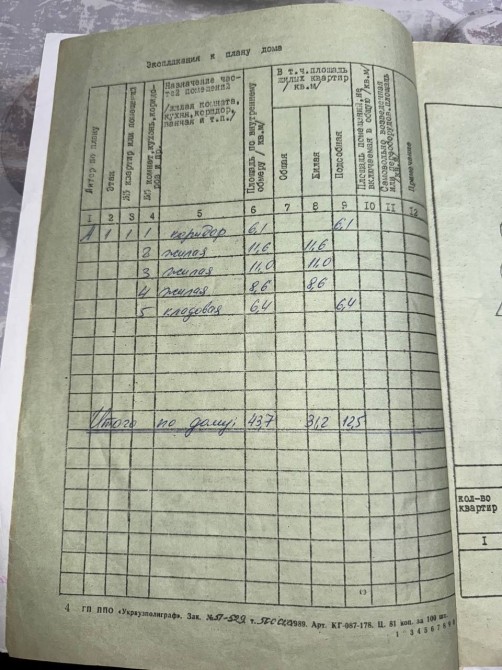 Экспликация к плану дома
Литер по плану
Этаж
№ квартир или помещений
№ комнат, кухонь, коридоров и пр.
Назначение частей помещений
/жилая комната,
кухня, коридор,
ванная и т.п./
Площадь по внутреннему обмеру кв.м/
В т.ч. площадь
жилых квартир
/кв.м/
Общая
Жилая
Подсобная
Площадь помещений, не включаемая в общую /кв.м/
Самовольно возведенная или переоборудов. площадь
Примечание
1 2 3 4 5 6 7 8 9 10 11 12
А 1 1 1 коридор 6,1 6,1
2 жилая 11,6 11,6
3 жилая 11,0 11,0
4 жилая 8,6 8,6
5 кладовая 6,4 6,4
Итого по дому: 43,7 31,2 12,5
4 ГП ППО «Укрвузполиграф». Зак. 1989. Арт. КГ-087-178. Ц. 81 коп. за 100 шт.
1 3 4 5 6 7 8
кол-во
квартир
I